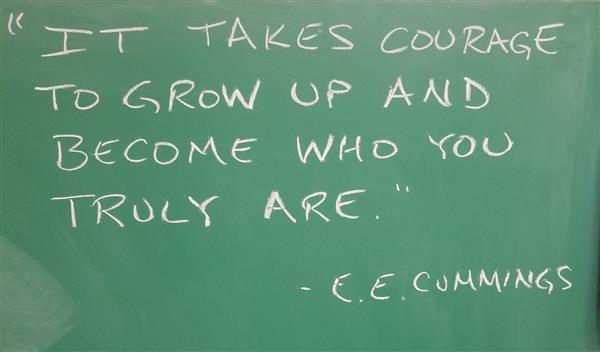 "IT TAKES COURAGE
TO GROW UP AND
BECOME WHO YOU
TRULY ARE."
- E.E. CUMMINGS